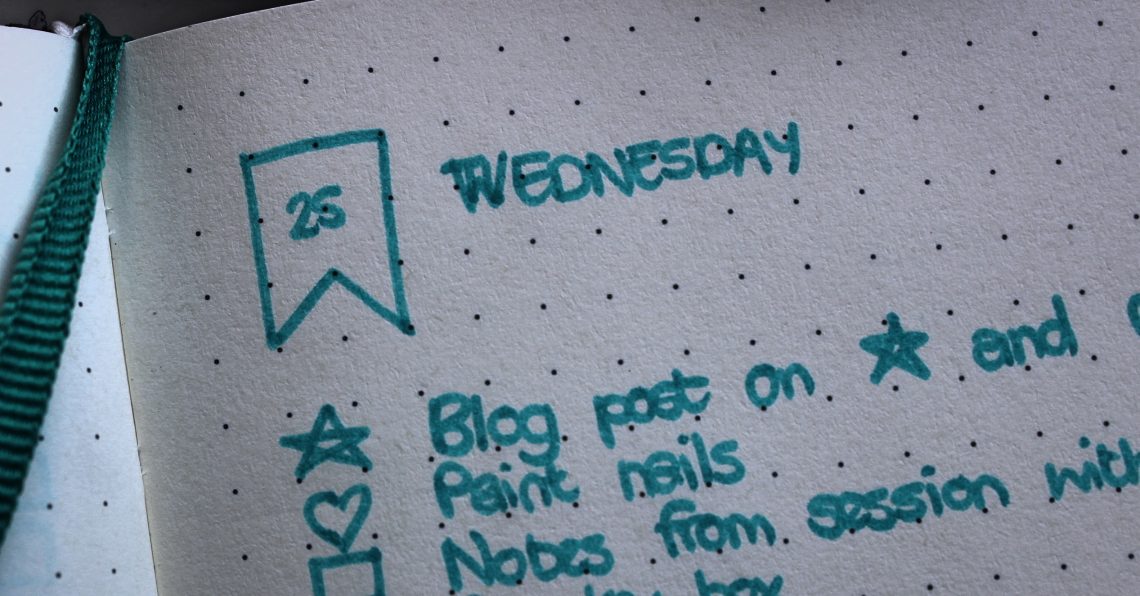 25
WEDNESDAY
Blog post on ☆ and
Paint nails
Notes from session with
box